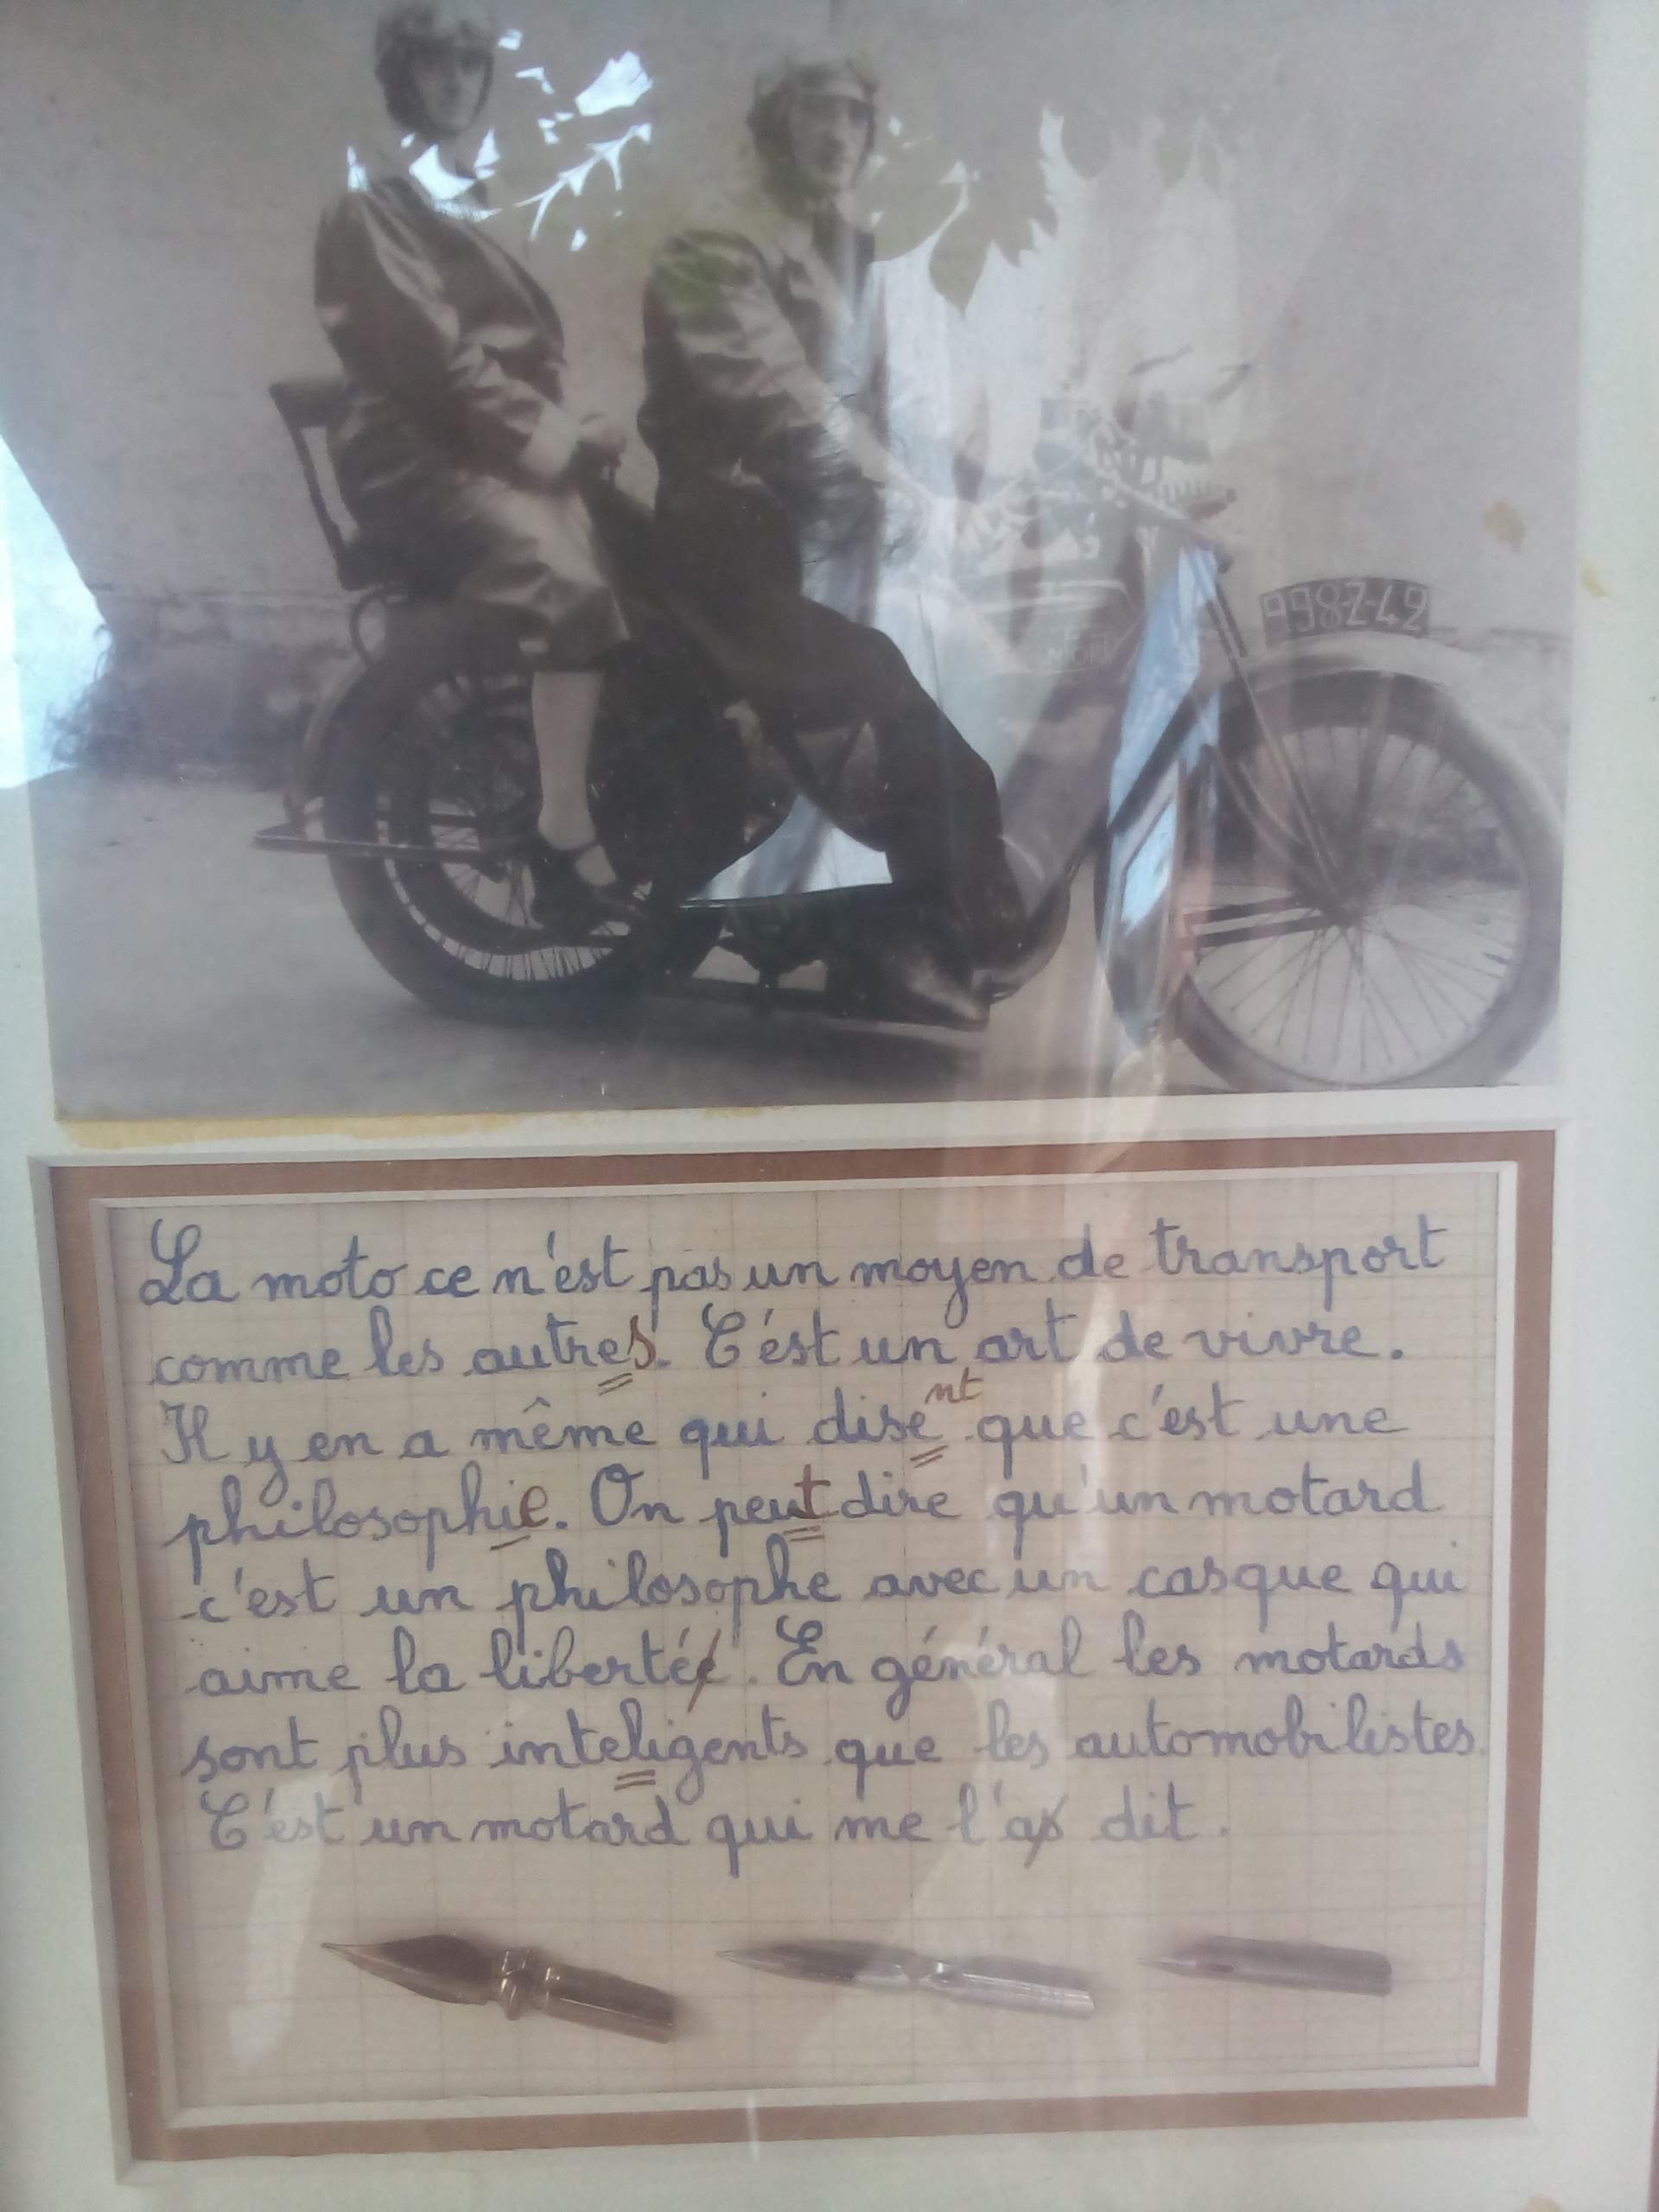 La moto ce n'est pas un moyen de transport
comme les autres. C'est un art de vivre.
Il y en a même qui disent que c'est une
philosophie. On peut dire qu'un motard
c'est un philosophe avec un casque qui
aime la liberté. En général les motards
sont plus inteligents que les automobilistes.
C'est un motard qui me l'a dit.